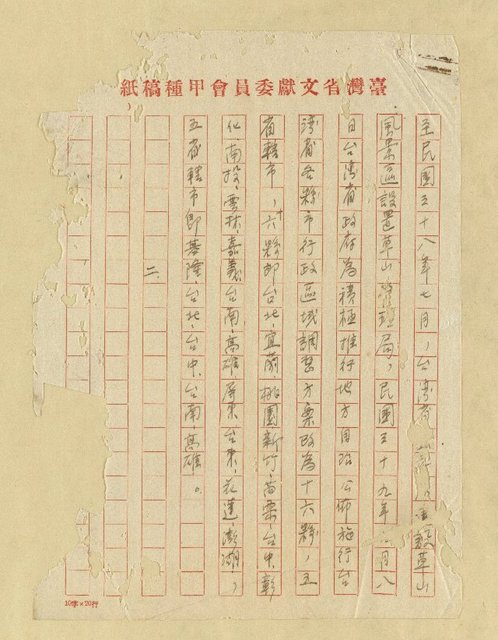 臺灣省文獻委員會甲種稿紙
至民國三十八年七月，台灣省
草山
風景區設置草山管理局，民國三十九年 月八
日台湾省政府为積極推行地方自治公佈施行台
湾省各縣市行政區域調整方案改為十六縣，五
省轄市，十六縣即台北、宜蘭、桃園、新竹、苗栗、台中、彰
化、南投、雲林、嘉義、台南、高雄、屏東、台東、花蓮、澎湖，
五省轄市即基隆、台北、台中、台南、高雄。
二、
10字×20行